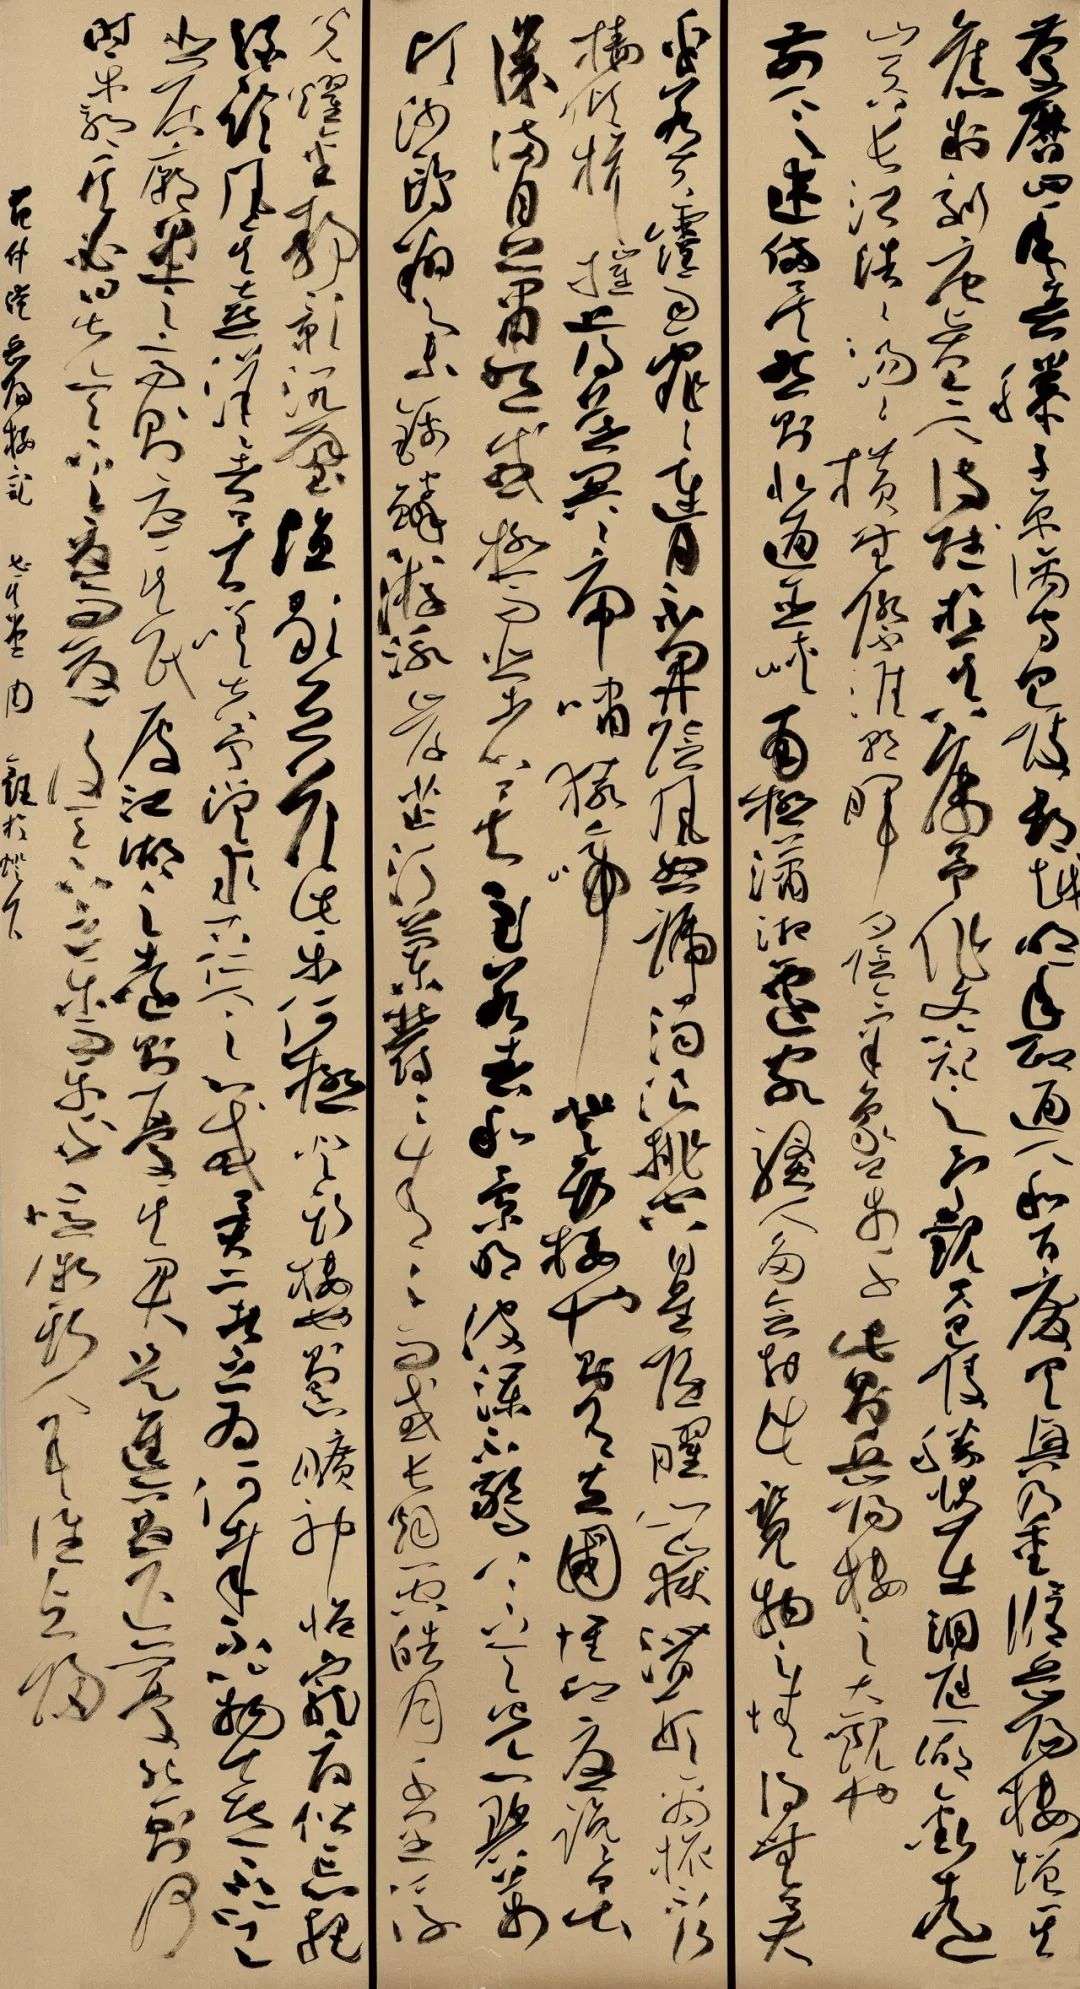 慶曆四年春滕子京謫守巴陵郡越明年政通人和百廢具興乃重修岳陽樓增其
舊制刻唐賢今人詩賦於其上屬予作文以記之予觀夫巴陵勝狀在洞庭一湖銜遠
山吞長江浩浩湯湯橫無際涯朝暉夕陰氣象萬千此則岳陽樓之大觀也
前人之述備矣然則北通巫峽南極瀟湘遷客騷人多會於此覽物之情得無異
乎若夫霪雨霏霏連月不開陰風怒號濁浪排空星隱曜山嶽潛形商旅不行
檣傾楫摧薄暮冥冥虎嘯猿啼登斯樓也則有去國懷鄉憂讒畏
譏滿目蕭然感極而悲者矣至若春和景明波瀾不驚上下天光一碧萬
頃沙鷗翔集錦鱗游泳岸芷汀蘭鬱鬱青青而或長煙一空皓月千里浮
光耀金靜影沉璧漁歌互答此樂何極登斯樓也則有心曠神怡寵辱偕忘把
酒臨風其喜洋洋者矣嗟夫予嘗求古仁人之心或異二者之為何哉不以物喜不以己
悲居廟堂之高則憂其民處江湖之遠則憂其君是進亦憂退亦憂然則何
時而樂耶其必曰先天下之憂而憂後天下之樂而樂乎噫微斯人吾誰與歸
范仲淹岳陽樓記 於燈下